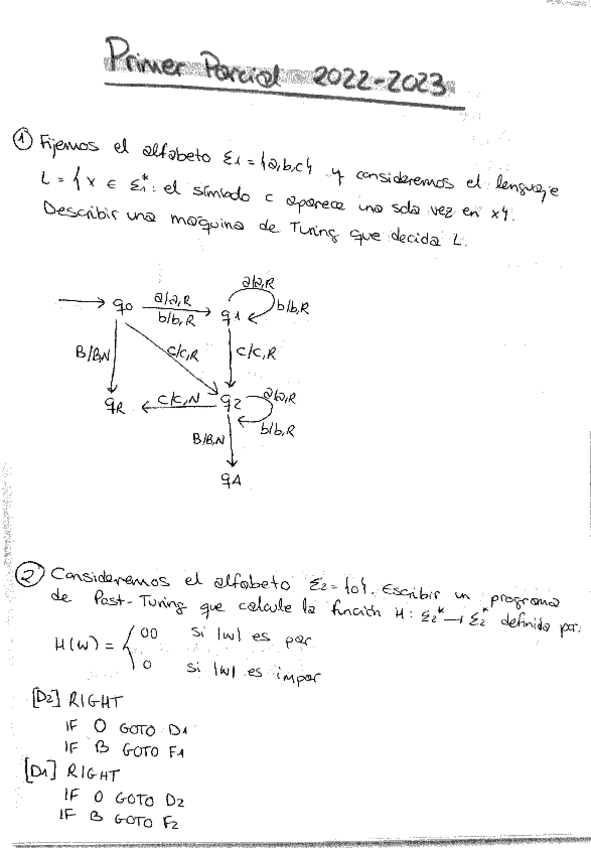 Primer Parcial 2022-2023
① Fijemos el alfabeto Σ1 = {a,b,c} y consideremos el lenguaje
L = {x ∈ Σ1*: el símbolo c aparece una sola vez en x}.
Describir una máquina de Turing que decida L.
a/a,R
→ q0 a/a,R → q1 b/b,R
b/b,R
B/B,N c/c,R c/c,R
qR ← c/c,N q2 a/a,R
b/b,R
B/B,N
qA
② Consideremos el alfabeto Σ2 = {0}. Escribir un programa
de Post-Turing que calcule la función H: Σ2* → Σ2* definida por:
H(w) = { 00 si |w| es par
0 si |w| es impar
[D2] RIGHT
IF 0 GOTO D1
IF B GOTO F1
[D1] RIGHT
IF 0 GOTO D2
IF B GOTO F2